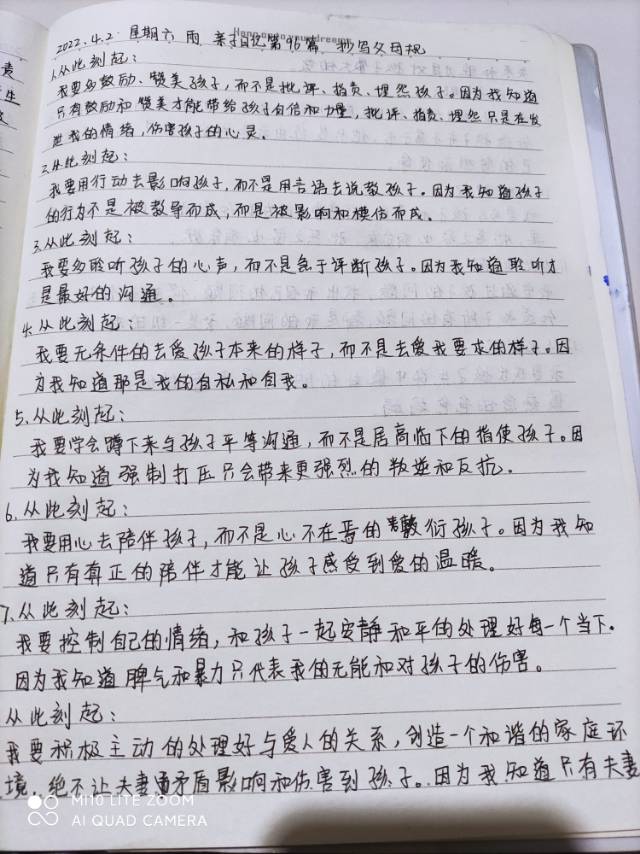 2022.4.2 星期六 雨 亲子日记第96篇 抄写父母规
1.从此刻起:
我要多鼓励、赞美孩子,而不是批评、指责、埋怨孩子。因为我知道
只有鼓励和赞美才能带给孩子自信和力量,批评、指责、埋怨只是在发
泄我的情绪,伤害孩子的心灵。
2.从此刻起:
我要用行动去影响孩子,而不是用言语去说教孩子。因为我知道孩子
的行为不是被教导而成,而是被影响和模仿而成。
3.从此刻起:
我要多聆听孩子的心声,而不是急于评断孩子。因为我知道聆听才
是最好的沟通。
4.从此刻起:
我要无条件的去爱孩子本来的样子,而不是去爱我要求的样子。因
为我知道那是我的自私和自我。
5.从此刻起:
我要学会蹲下来与孩子平等沟通,而不是居高临下的指使孩子。因
为我知道强制打压只会带来更强烈的叛逆和反抗.
6.从此刻起:
我要用心去陪伴孩子,而不是心不在焉的敷衍孩子。因为我知
道只有真正的陪伴才能让孩子感受到爱的温暖。
7.从此刻起:
我要控制自己的情绪,和孩子一起安静和平的处理好每一个当下.
因为我知道脾气和暴力只代表我的无能和对孩子的伤害。
从此刻起:
我要积极主动的处理好与爱人的关系,创造一个和谐的家庭环
境,绝不让夫妻矛盾影响和伤害到孩子。因为我知道只有夫妻
MI 10 LITE ZOOM
AI QUAD CAMERA